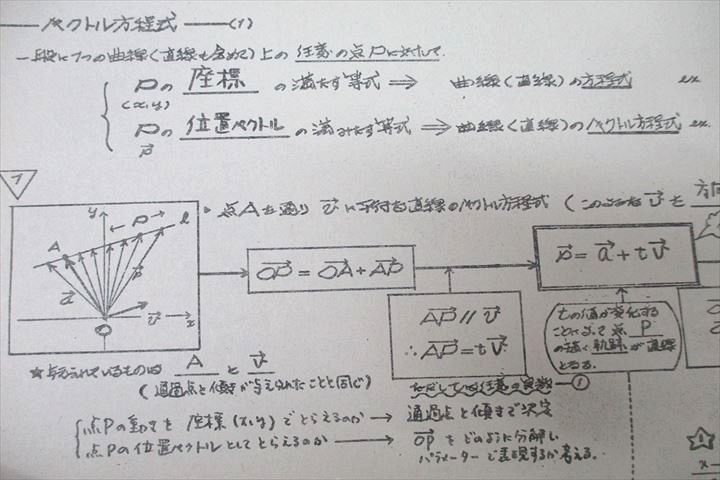 ベクトル方程式 —(1)
一般に1つの曲線(直線も含めて)上の任意の点Pに対して
Pの 座標 の満たす等式 ⇒ 曲線(直線)の方程式 ex
(x,y)
Pの 位置ベクトル の満たす等式 ⇒ 曲線(直線)のベクトル方程式 ex.
p→
1
点Aを通り v→ に平行な直線のベクトル方程式 (このような v→ を 方向
y P l
A
a→ p→
O v→ x
OP→ = OA→ + AP→
p→ = a→ + t v→
AP→ // v→
∴ AP→ = t v→
tの値が変化する
ことによって点 P
の描く軌跡が直線
となる。
☆ 与えられているものは A と v→
(通過点と傾きが与えられたことと同じ)
ただしtは任意の実数 ①
点Pの動きを 座標(x,y)でとらえるのか → 通過点と傾きで決定
点Pの位置ベクトルとしてとらえるのか → OP→ をどのように分解し
パラメーターで表現するか考える。
1